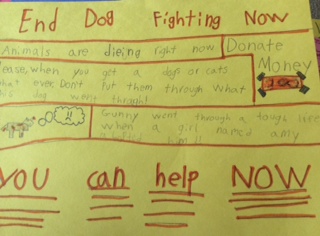 End Dog Fighting Now
Animals are dieing right now
Donate
Money
100
ease, when you get a dogs or cats
what ever. Don't put them through what
this dog went through!
Gunny went through a tough life
when a girl named amy
him!!
YOU can help NOW